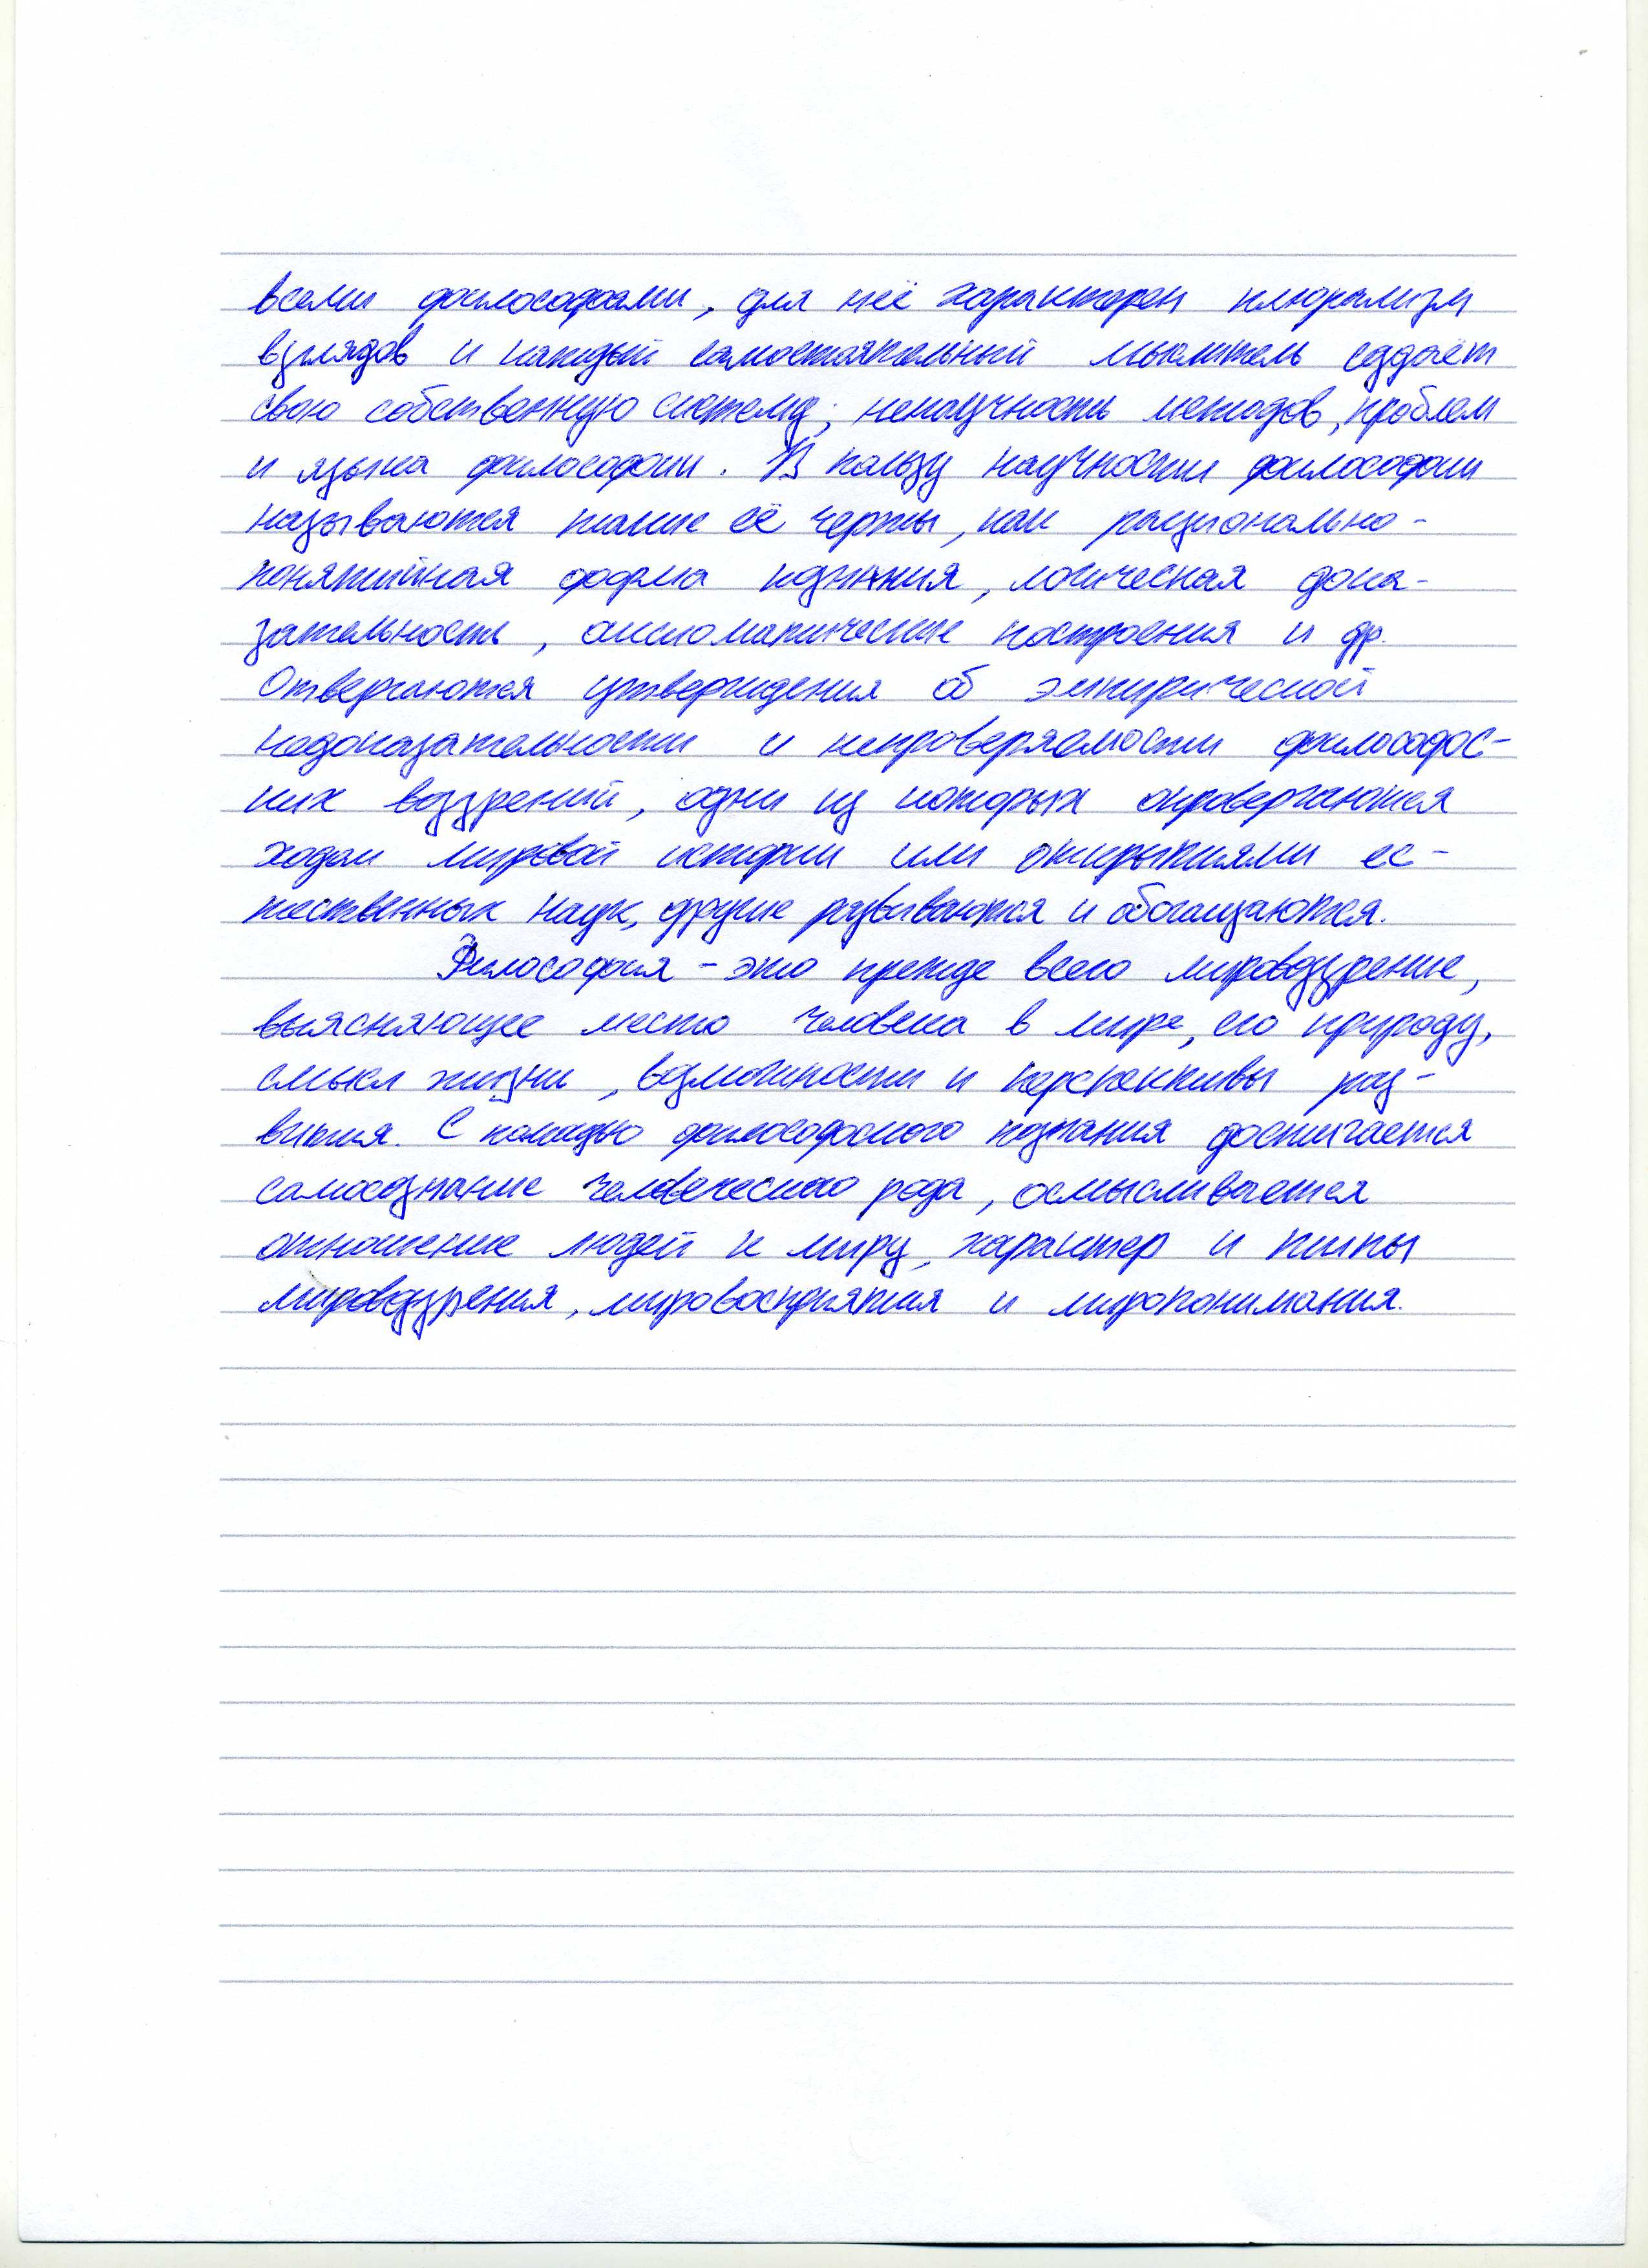 всеми философами, для неё характерен плюрализм
взглядов и каждый самостоятельный мыслитель создаёт
свою собственную систему; ненаучность методов, проблем
и языка философии. В пользу научности философии
называются такие её черты, как рационально-
понятийная форма познания, логическая дока-
зательность, аксиоматические построения и др.
Отвергаются утверждения об эмпирической
недоказательности и непроверяемости философс-
ких воззрений, одни из которых опровергаются
ходом мировой истории или открытиями ес-
тественных наук, другие развиваются и обогащаются.
Философия - это прежде всего мировоззрение,
выясняющее место человека в мире, его природу,
смысл жизни, возможности и перспективы раз-
вития. С помощью философского познания достигается
самосознание человеческого рода, осмысливается
отношение людей к миру, характер и типы
мировоззрения, мировосприятия и миропонимания.